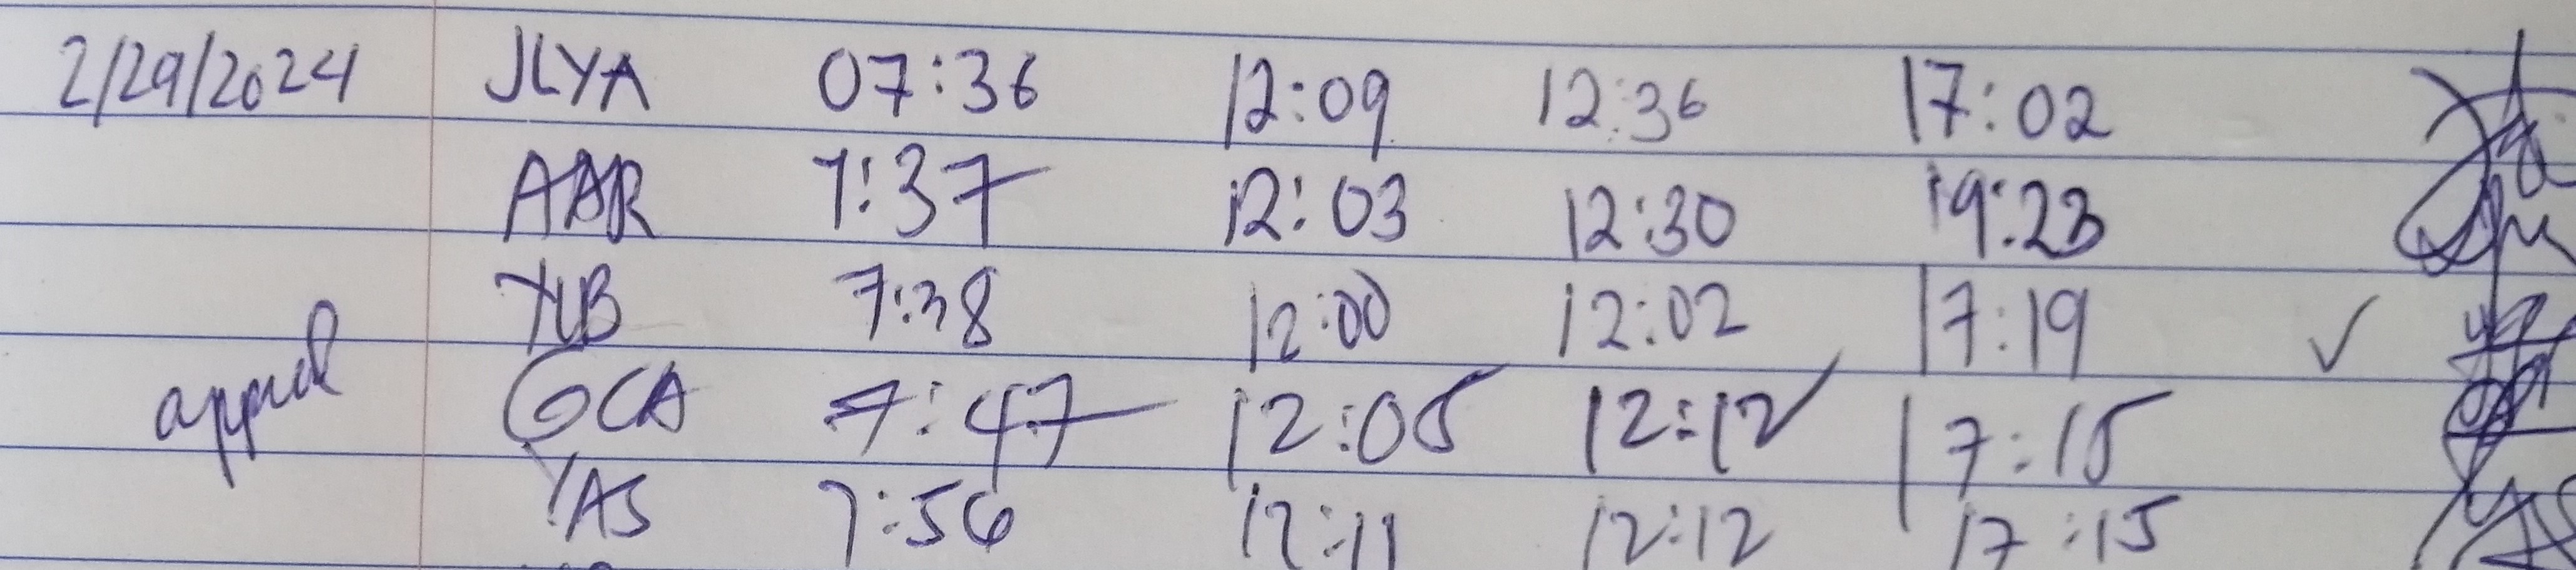 2/29/2024 JLYA 07:36 12:09 12:36 17:02
AAR 7:37 12:03 12:30 19:23
YLB 7:38 12:00 12:02 17:19 ✓
GCA 7:47 12:05 12:12 17:15
YAS 7:56 12:11 12:12 17:15